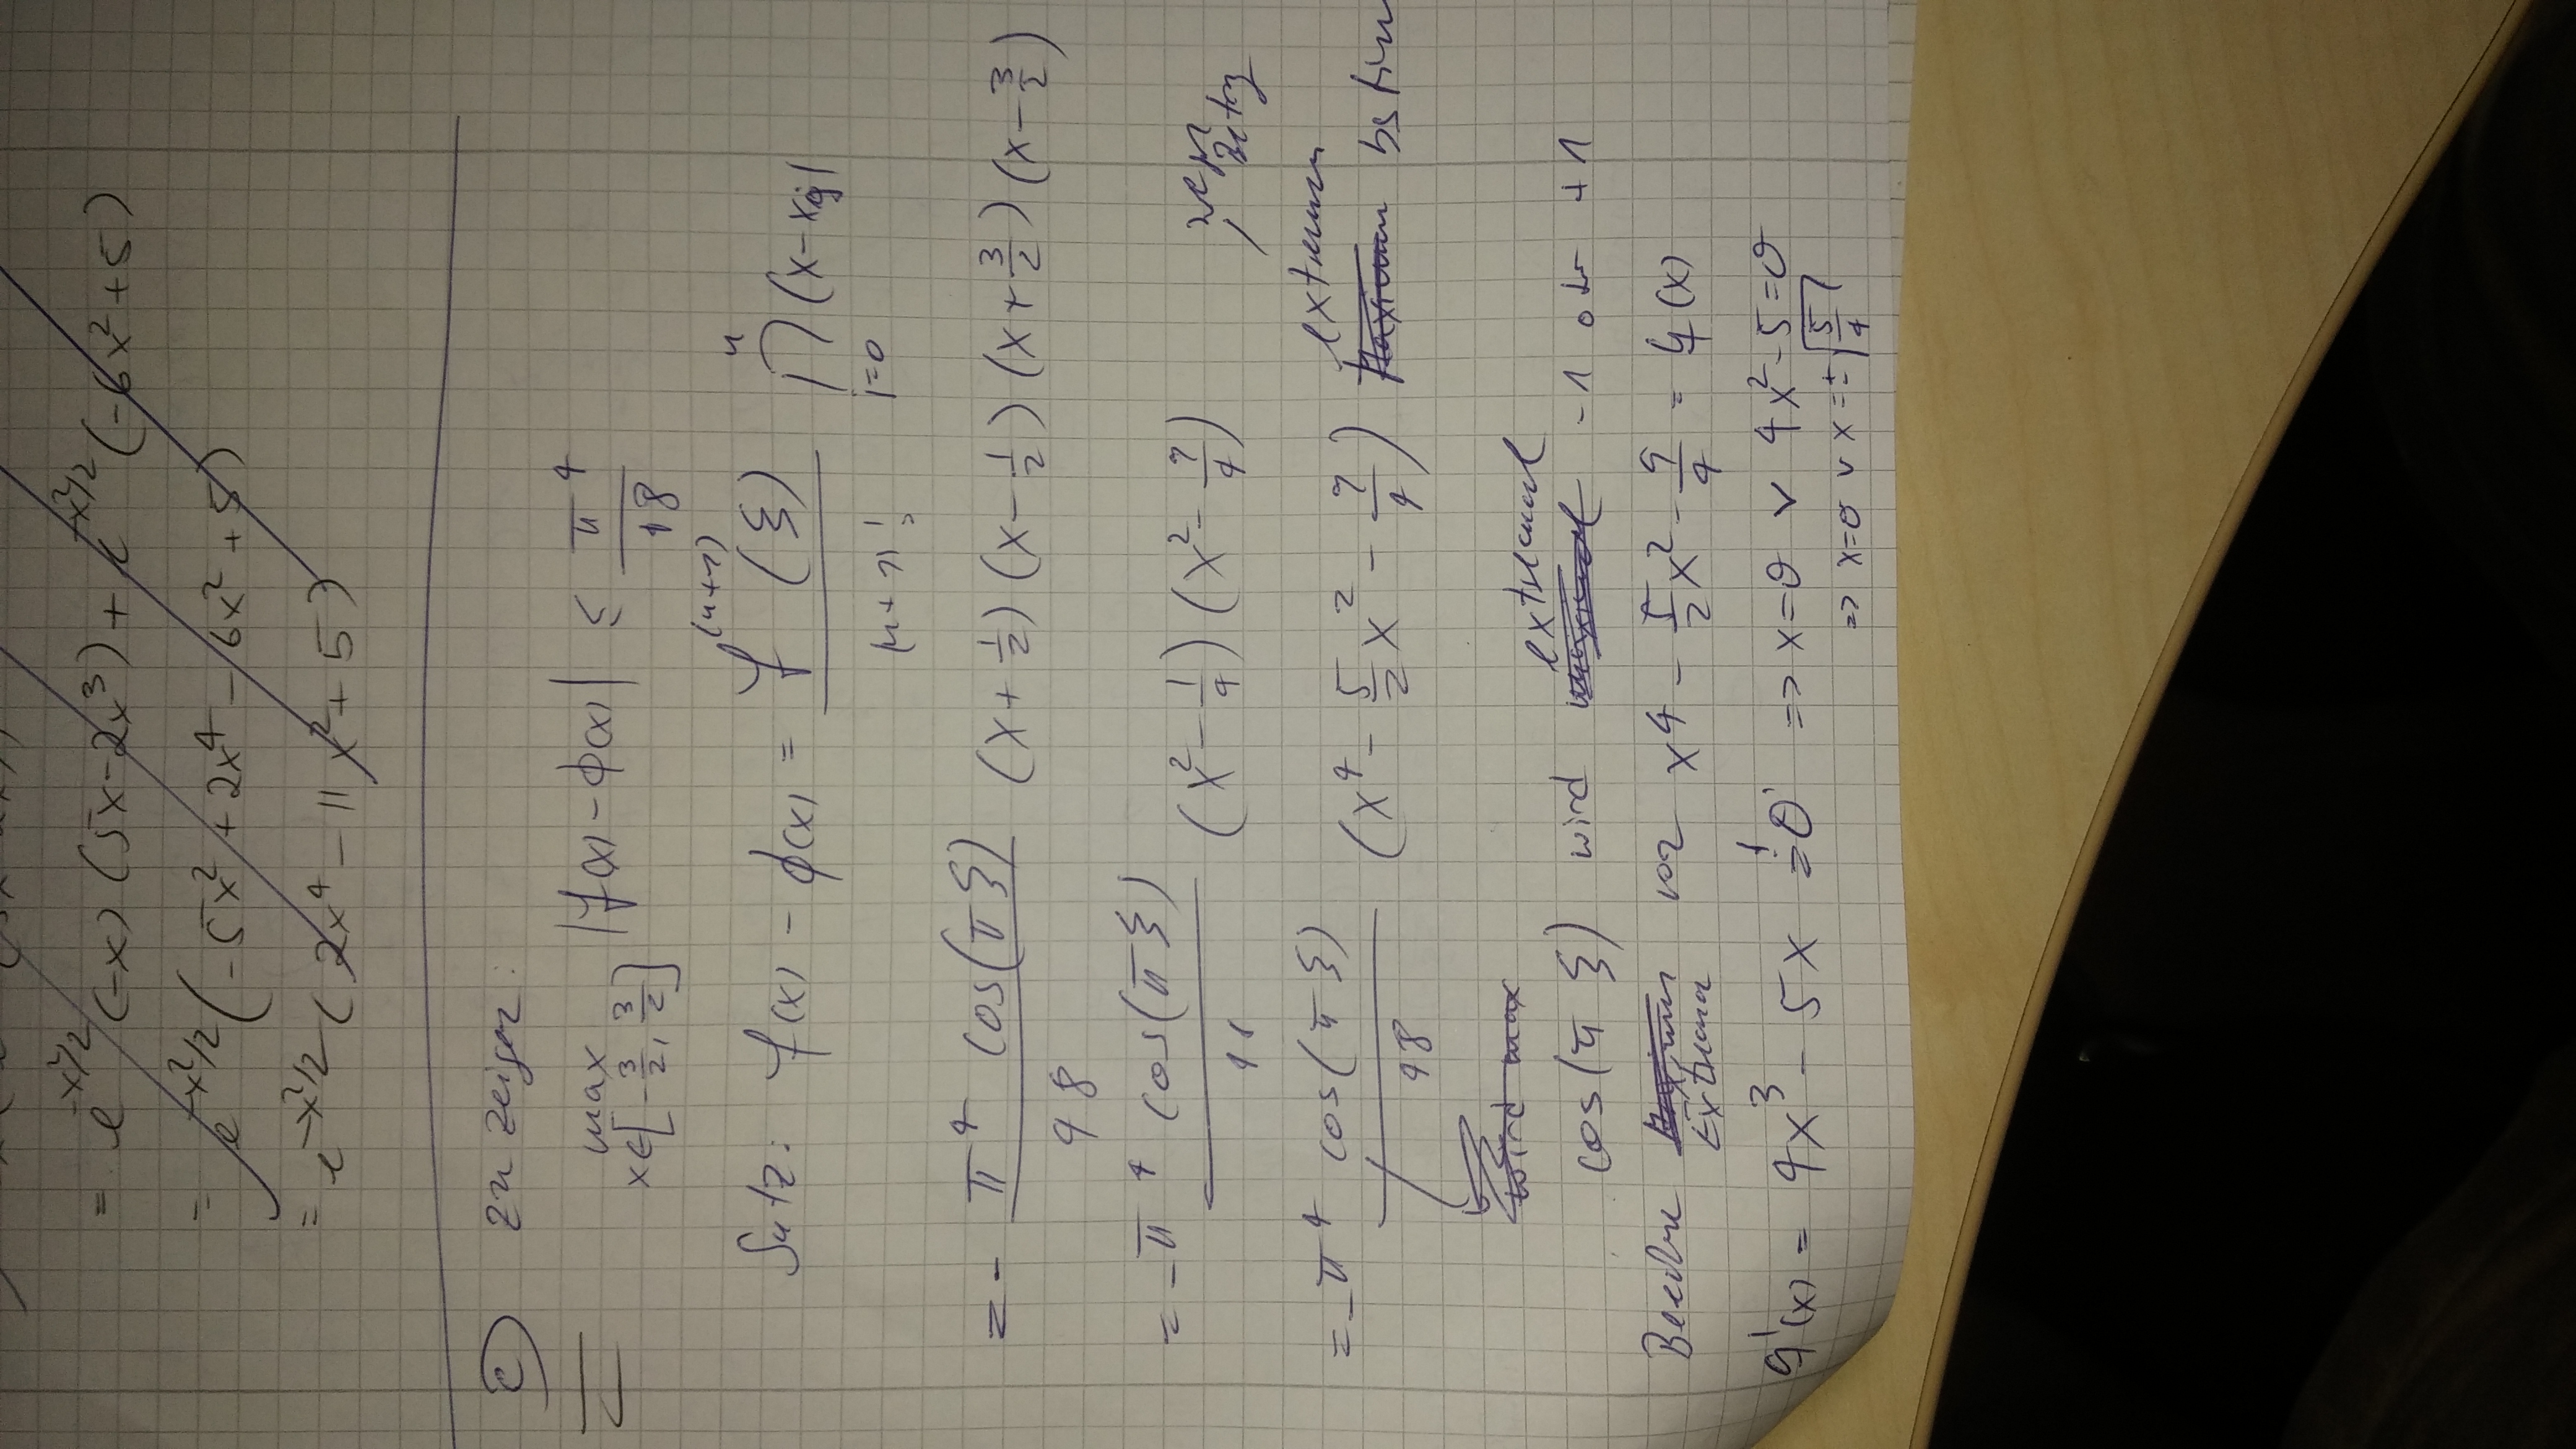 = e^{-x²/2} (-x) (5x-2x³) + e^{-x²/2} (-6x²+5)
= e^{-x²/2} (-5x² + 2x⁴ - 6x² + 5)
= e^{-x²/2} (2x⁴ - 11x² + 5)
c) zu zeigen:
max x∈[-3/2, 3/2] |f(x) - ϕ(x)| ≤ π⁴/48
Satz: f(x) - ϕ(x) = f^{(n+1)}(ξ)/(n+1)! ∏_{j=0}^{n} (x-x_j)
= - π⁴ cos(πξ)/48 (x+1/2) (x-1/2) (x+3/2) (x-3/2)
= -π⁴ cos(πξ)/48 (x²-1/4) (x²-9/4)
Betrag
= -π⁴ cos(πξ)/48 (x⁴ - 5/2 x² - 9/4) extremum
wird max
extremal
cos(πξ) wird maximal -1 oder +1
Berechne Extrema von x⁴ - 5/2 x² - 9/4 = q(x)
q'(x) = 4x³ - 5x != 0 => x=0 ∨ 4x²-5=0
=> x=0 ∨ x=±√(5/4)